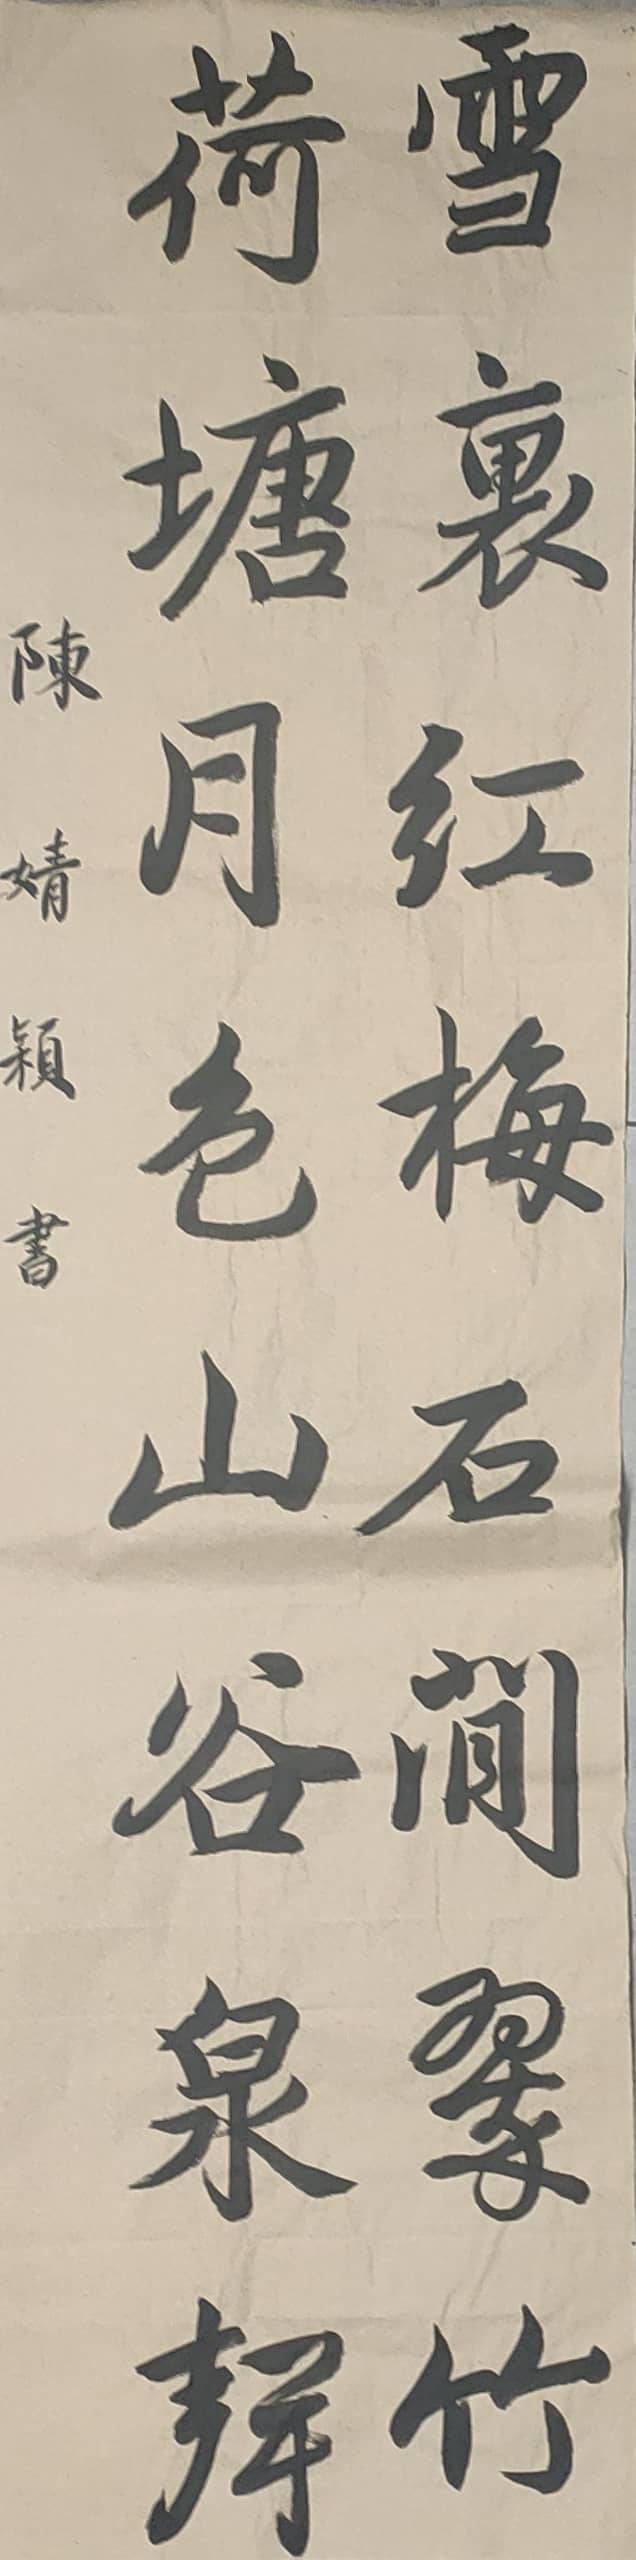 雪裏紅梅石間翠竹
荷塘月色山谷泉聲
陳婧穎書